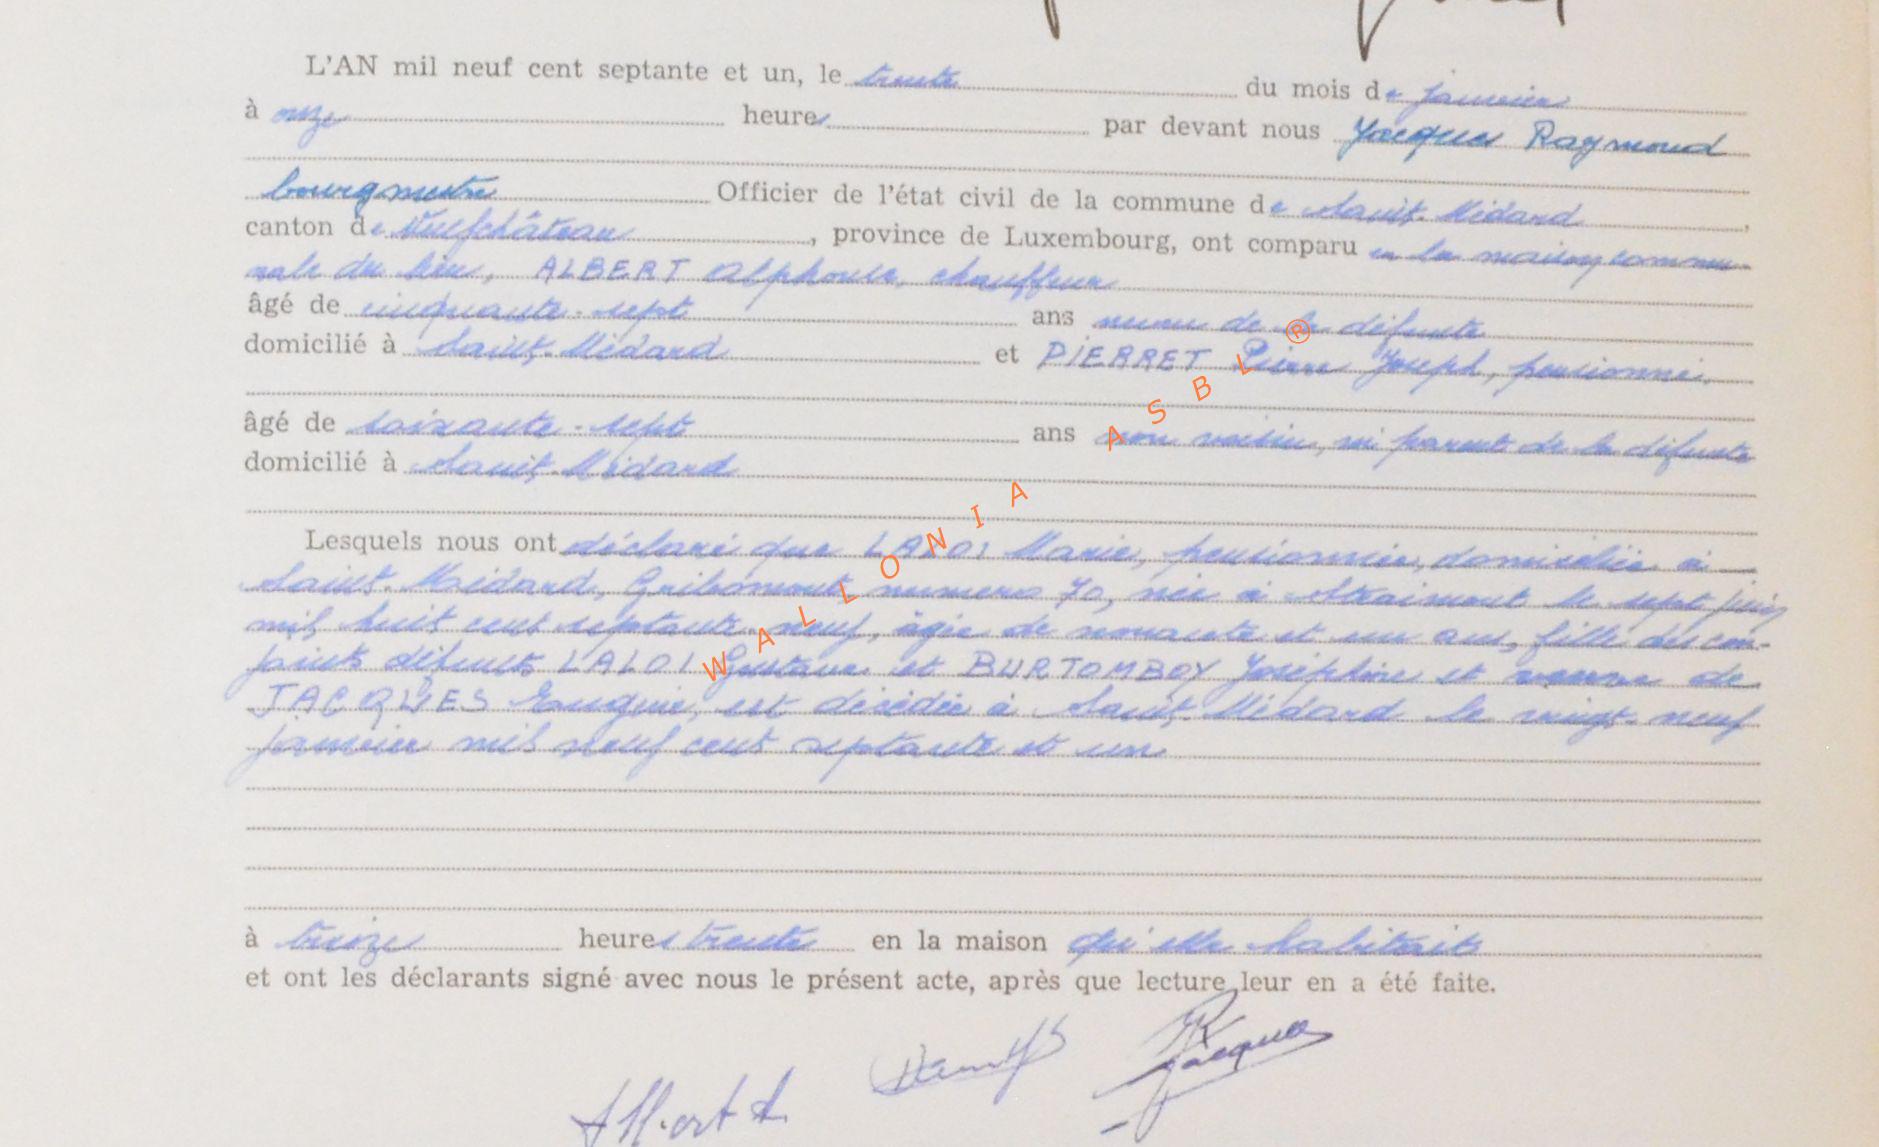 L'AN mil neuf cent septante et un, le trente du mois de janvier
à onze heures par devant nous Jacques Raymond
bourgmestre Officier de l'état civil de la commune de Saint-Médard,
canton de Neufchâteau, province de Luxembourg, ont comparu en la maison commu-
nale du lieu, ALBERT Alphonse, chauffeur
âgé de cinquante-sept ans neveu de la défunte
domicilié à Saint-Médard et PIERRET Pierre Joseph, pensionné,
âgé de soixante-sept ans non voisin, ni parent de la défunte
domicilié à Saint-Médard
Lesquels nous ont déclaré que LALOI Marie, pensionnée, domiciliée à
Saint-Médard, Gribomont numéro 70, née à Straimont le sept juin
mil huit cent septante-neuf, âgée de nonante et un ans, fille des con-
joints défunts LALOI Gustave et BURTOMBOY Joséphine et veuve de
JACQUES Eugène, est décédée à Saint-Médard le vingt-neuf
janvier mil neuf cent septante et un
à treize heures trente en la maison qu'elle habitait
et ont les déclarants signé avec nous le présent acte, après que lecture leur en a été faite.
Jacques
Albert A.
WALLONIA ASBL ®